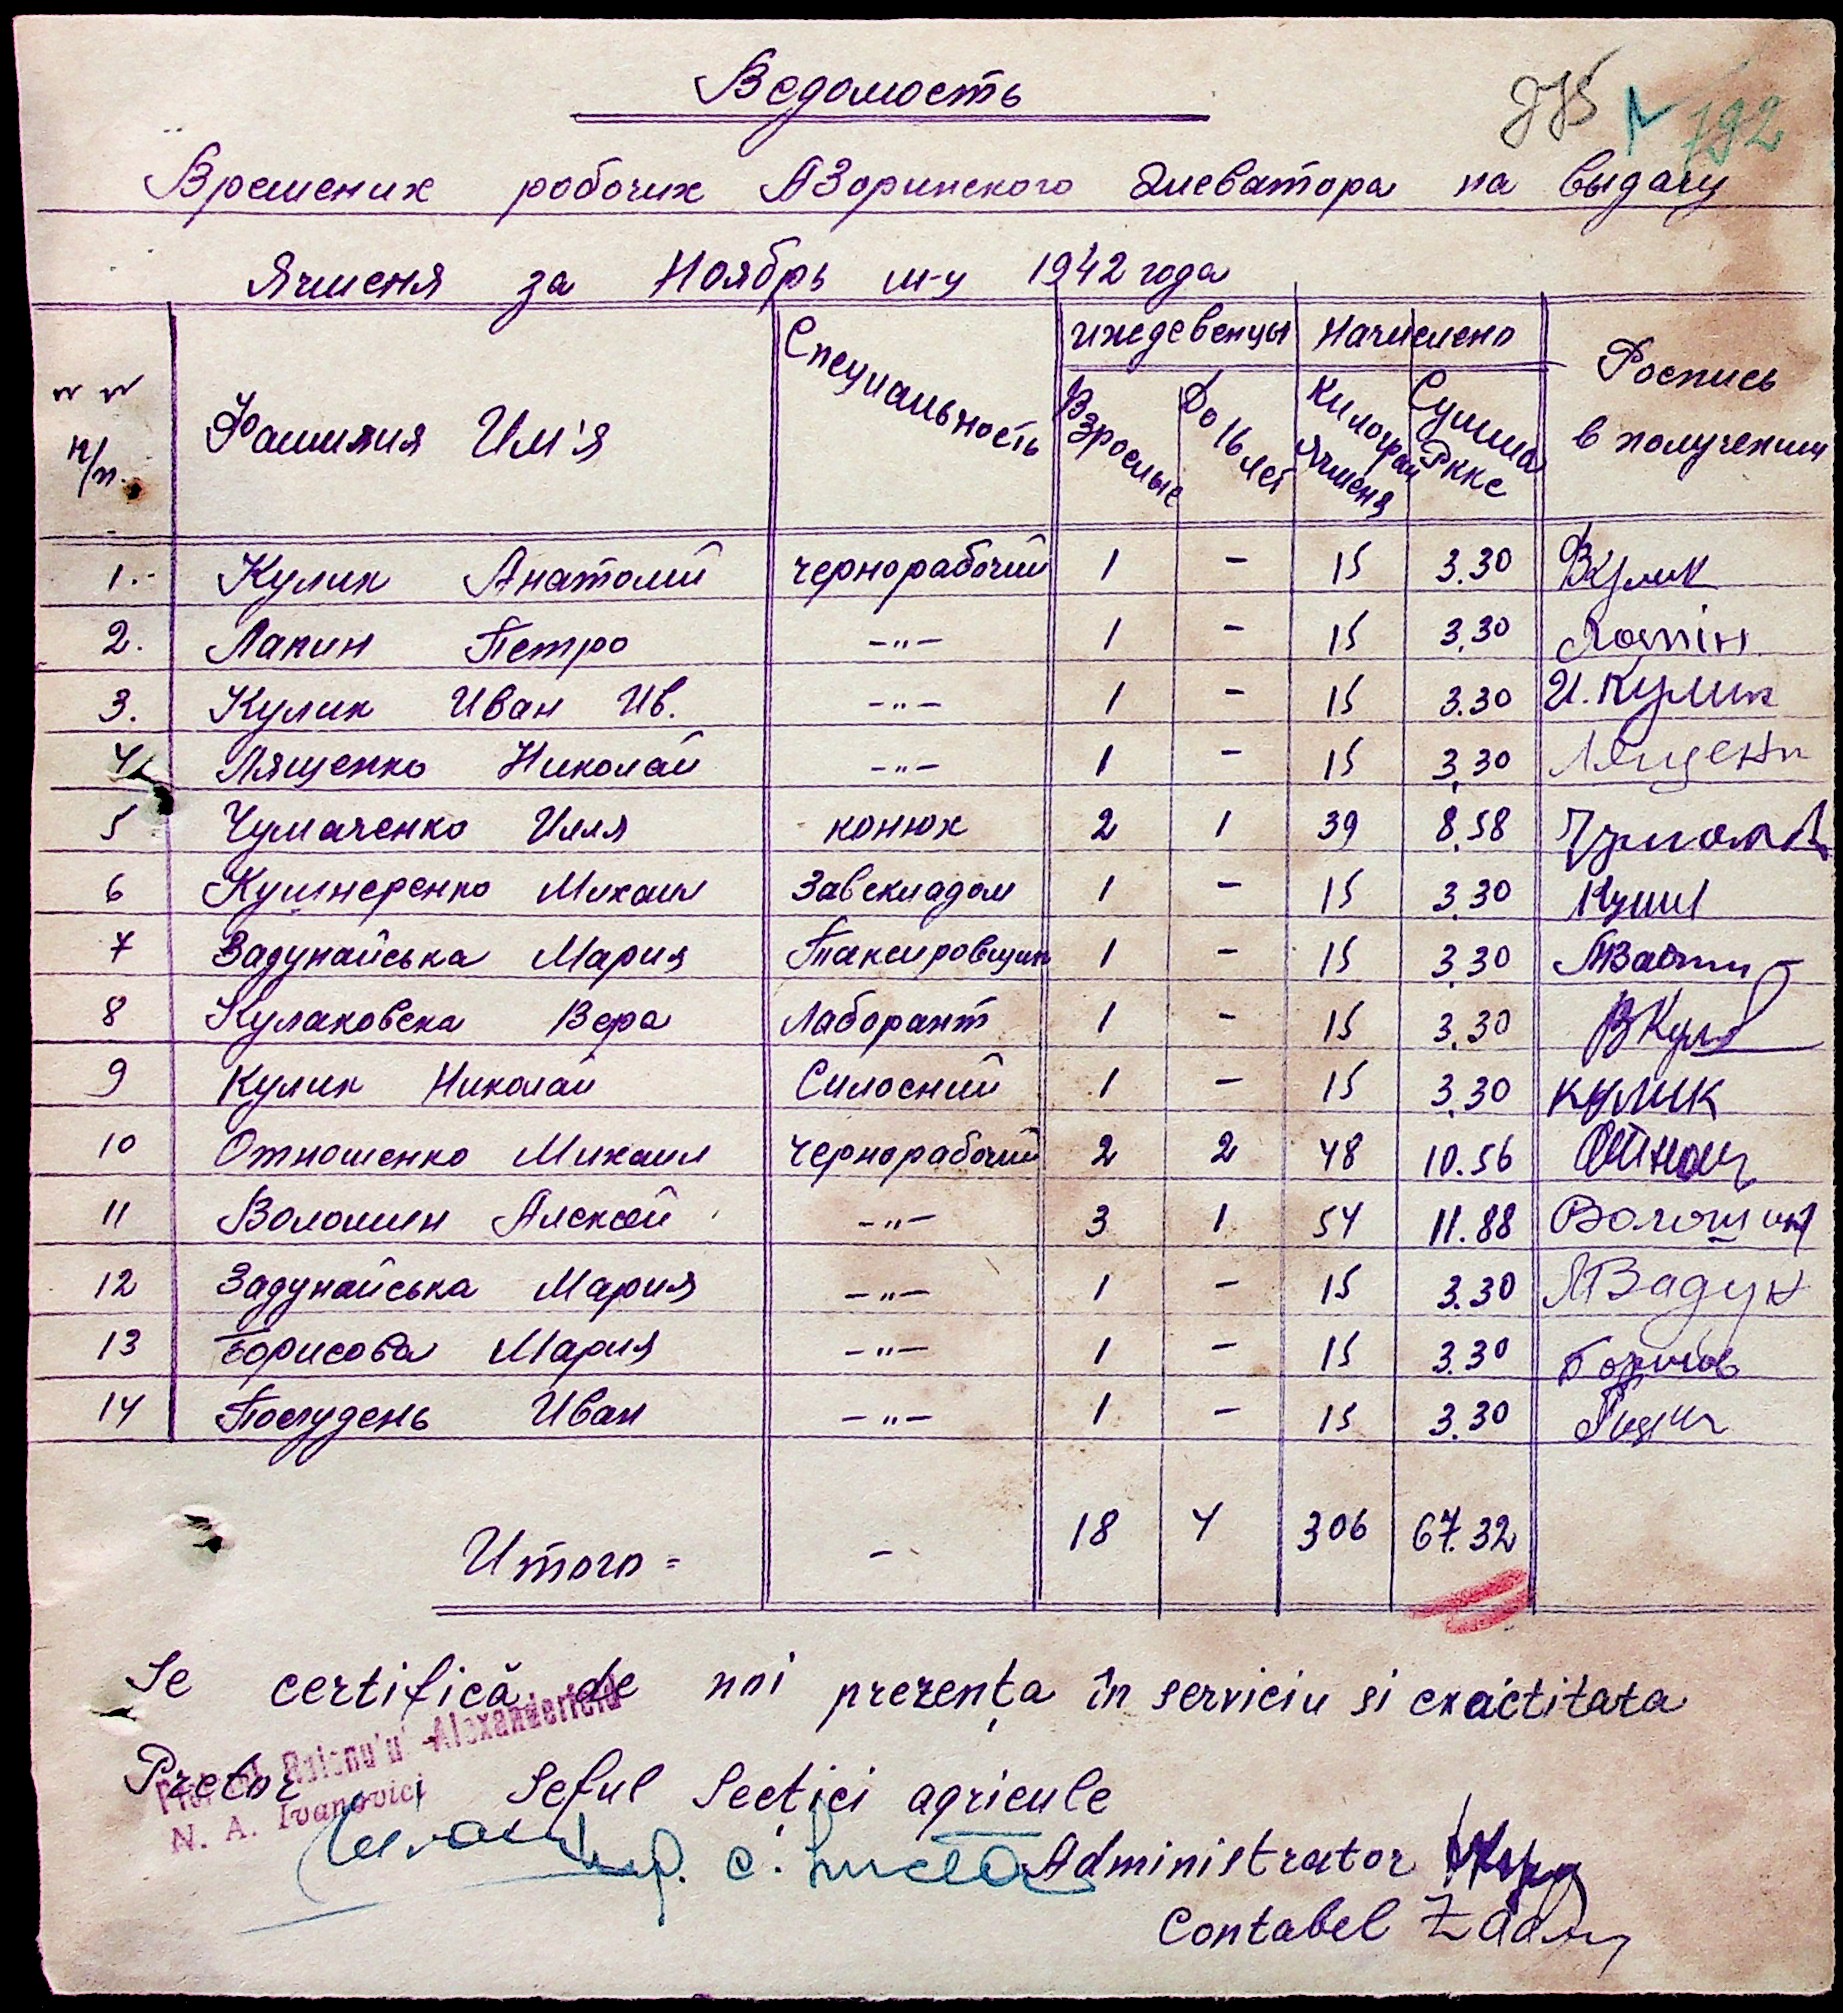 Ведомость
792
Времених робочих Азоринского Элеватора на выдачу
Ячменя за Ноябрь м-ц 1942 года
№ № п/п. Фамилия Им'я Специальность иждевенцы Начислено Роспись в получении
Взрослые До 16 лет Килограм Ячменя Сумма Рккс
1. Кулик Анатолий чернорабочий 1 - 15 3.30 ВКулик
2. Лапин Петро -"- 1 - 15 3.30 Лапін
3. Кулик Иван Ив. -"- 1 - 15 3.30 И. Кулик
4 Лященко Николай -"- 1 - 15 3.30 Лященк
5 Чумаченко Илля конюх 2 1 39 8.58
6 Кушнеренко Михаил Завскладом 1 - 15 3.30 Кушн
7 Задунайська Мария Таксировщик 1 - 15 3.30
8 Кулаковска Вера Лаборант 1 - 15 3.30 ВКул
9 Кулик Николай Силосний 1 - 15 3.30 Кулик
10 Отношенко Михаил Чернорабочий 2 2 48 10.56 Отнош
11 Волошин Алексей -"- 3 1 54 11.88 Волошин
12 Задунайська Мария -"- 1 - 15 3.30 МЗадун
13 Борисова Мария -"- 1 - 15 3.30 Борисов
14 Посудень Иван -"- 1 - 15 3.30
Итого = - 18 4 306 67.32
Se certifică de noi prezența în serviciu si exactitata
Pretor Seful Secției agricule
Pretorul Raionu'ui Alexanderfeld
N. A. Ivanovici
Administrator
Contabel